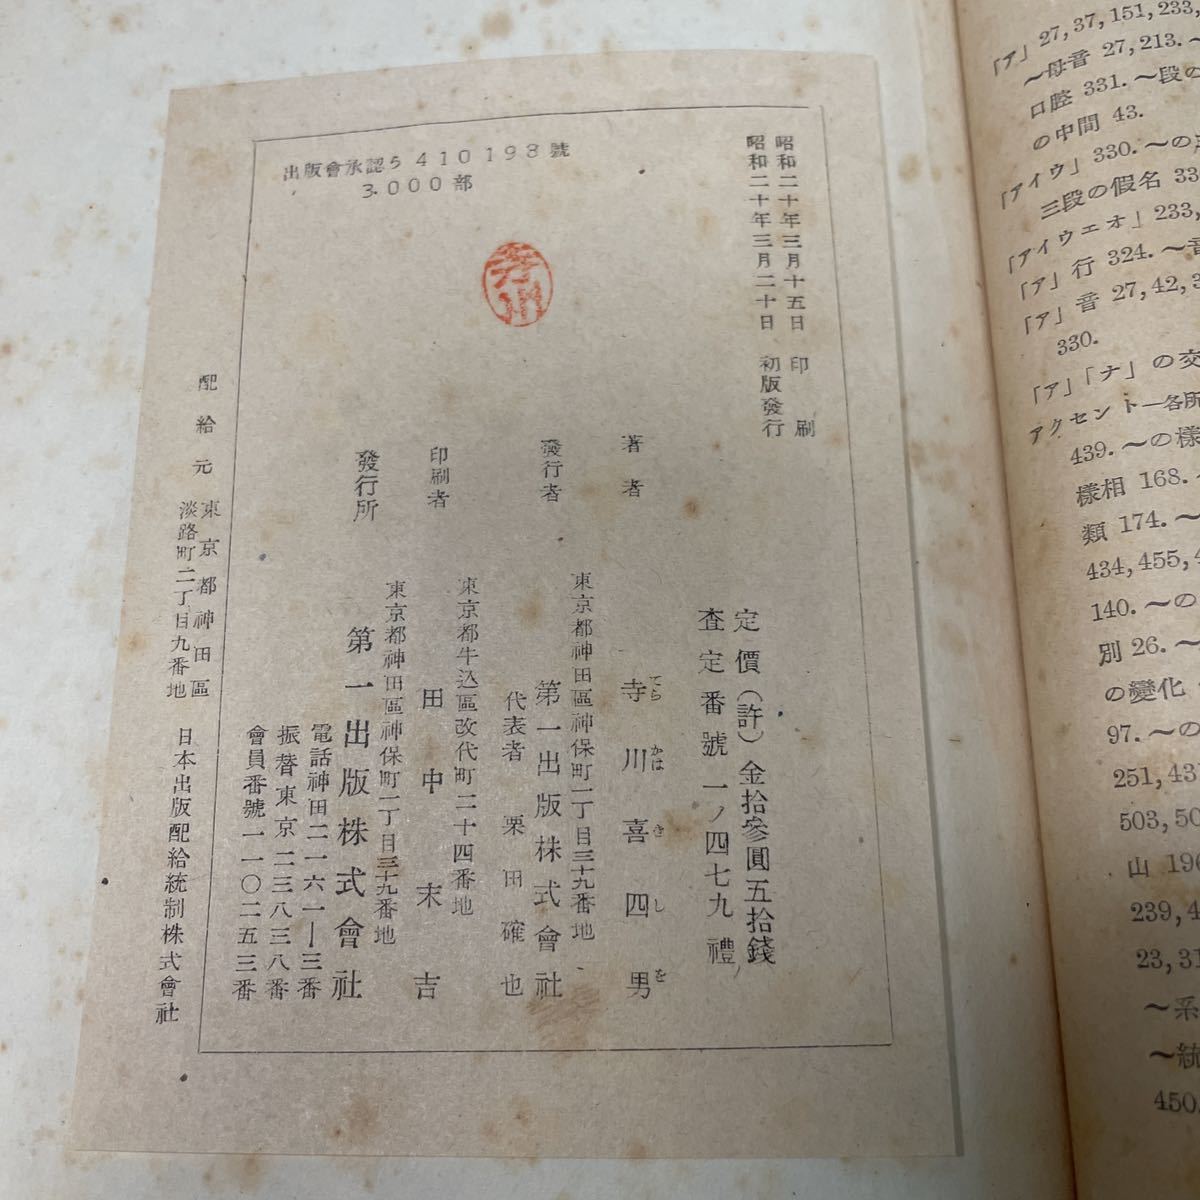 出版會承認ら410198號
3.000部
昭和二十年三月十五日 印刷
昭和二十年三月二十日 初版發行
定價（許）金拾參圓五拾錢
査定番號 一ノ四七九 禮
著者 寺川喜四男
てらかはきしを
東京都神田區神保町一丁目三十九番地
發行者 第一出版株式會社
代表者 栗田確也
東京都牛込區改代町二十四番地
印刷者 田中末吉
東京都神田區神保町一丁目三十九番地
發行所 第一出版株式會社
電話神田二一六一―三番
振替東京二三八三八番
會員番號一一〇二五三番
配給元 東京都神田區
淡路町二丁目九番地 日本出版配給統制株式會社
寺川
「ア」27,37,151,233,
〜母音 27,213.〜
口腔 331.〜段の
の中間 43.
「アイウ」330.〜の
三段の假名 33
「アイウエオ」233,
「ア」行 324.〜音
「ア」音 27,42,3
330.
「ア」「ナ」の交
アクセント―各所
439.〜の樣
樣相 168.〜
類 174.〜
434,455,4
140.〜の
別 26.〜
の變化
97.〜の
251,43
503,50
山 196
239,4
23,31
〜系
〜統
450.